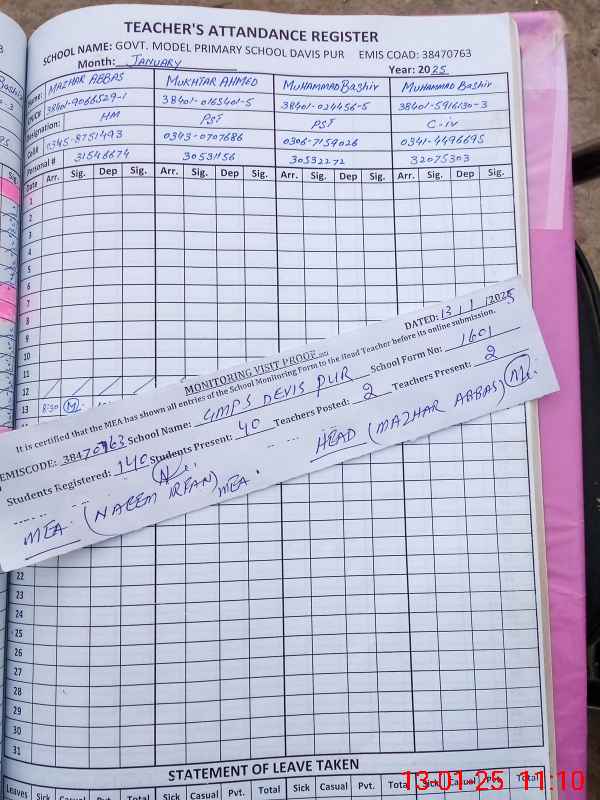 TEACHER'S ATTANDANCE REGISTER
SCHOOL NAME: GOVT. MODEL PRIMARY SCHOOL DAVIS PUR EMIS COAD: 38470763
Month: JANUARY Year: 2025
Name: MAZHAR ABBAS MUKHTAR AHMED MUHAMMAD Bashir MUHAMMAD Bashir
CNIC# 38401-9066529-1 38401-0165401-5 38401-024456-5 38401-5916130-3
Designation: HM PST PST C-iv
Cell# 0345-8751493 0343-0707686 0306-7159026 0341-4496695
Personal # 31546674 30531156 30532272 32075303
Date Arr. Sig. Dep Sig. Arr. Sig. Dep Sig. Arr. Sig. Dep Sig. Arr. Sig. Dep Sig.
1
2
3
4
5
6
7
8
9
10
11
12
13 8:30
MONITORING VISIT PROOF DATED: 13/1/2025
It is certified that the MEA has shown all entries of the School Monitoring Form to the Head Teacher before its online submission.
EMISCODE: 38470763 School Name: GMPS DEVIS PUR School Form No: 1601
Students Registered: 140 Students Present: 40 Teachers Posted: 2 Teachers Present: 2
MEA (NAEEM IRFAN) MEA. HEAD (MAZHAR ABBAS)
22
23
24
25
26
27
28
29
30
31
STATEMENT OF LEAVE TAKEN
Leaves Sick Casual Pvt. Total Sick Casual Pvt. Total Sick Casual Pvt. Total Sick Casual Pvt. Total
13-01-25 11:10